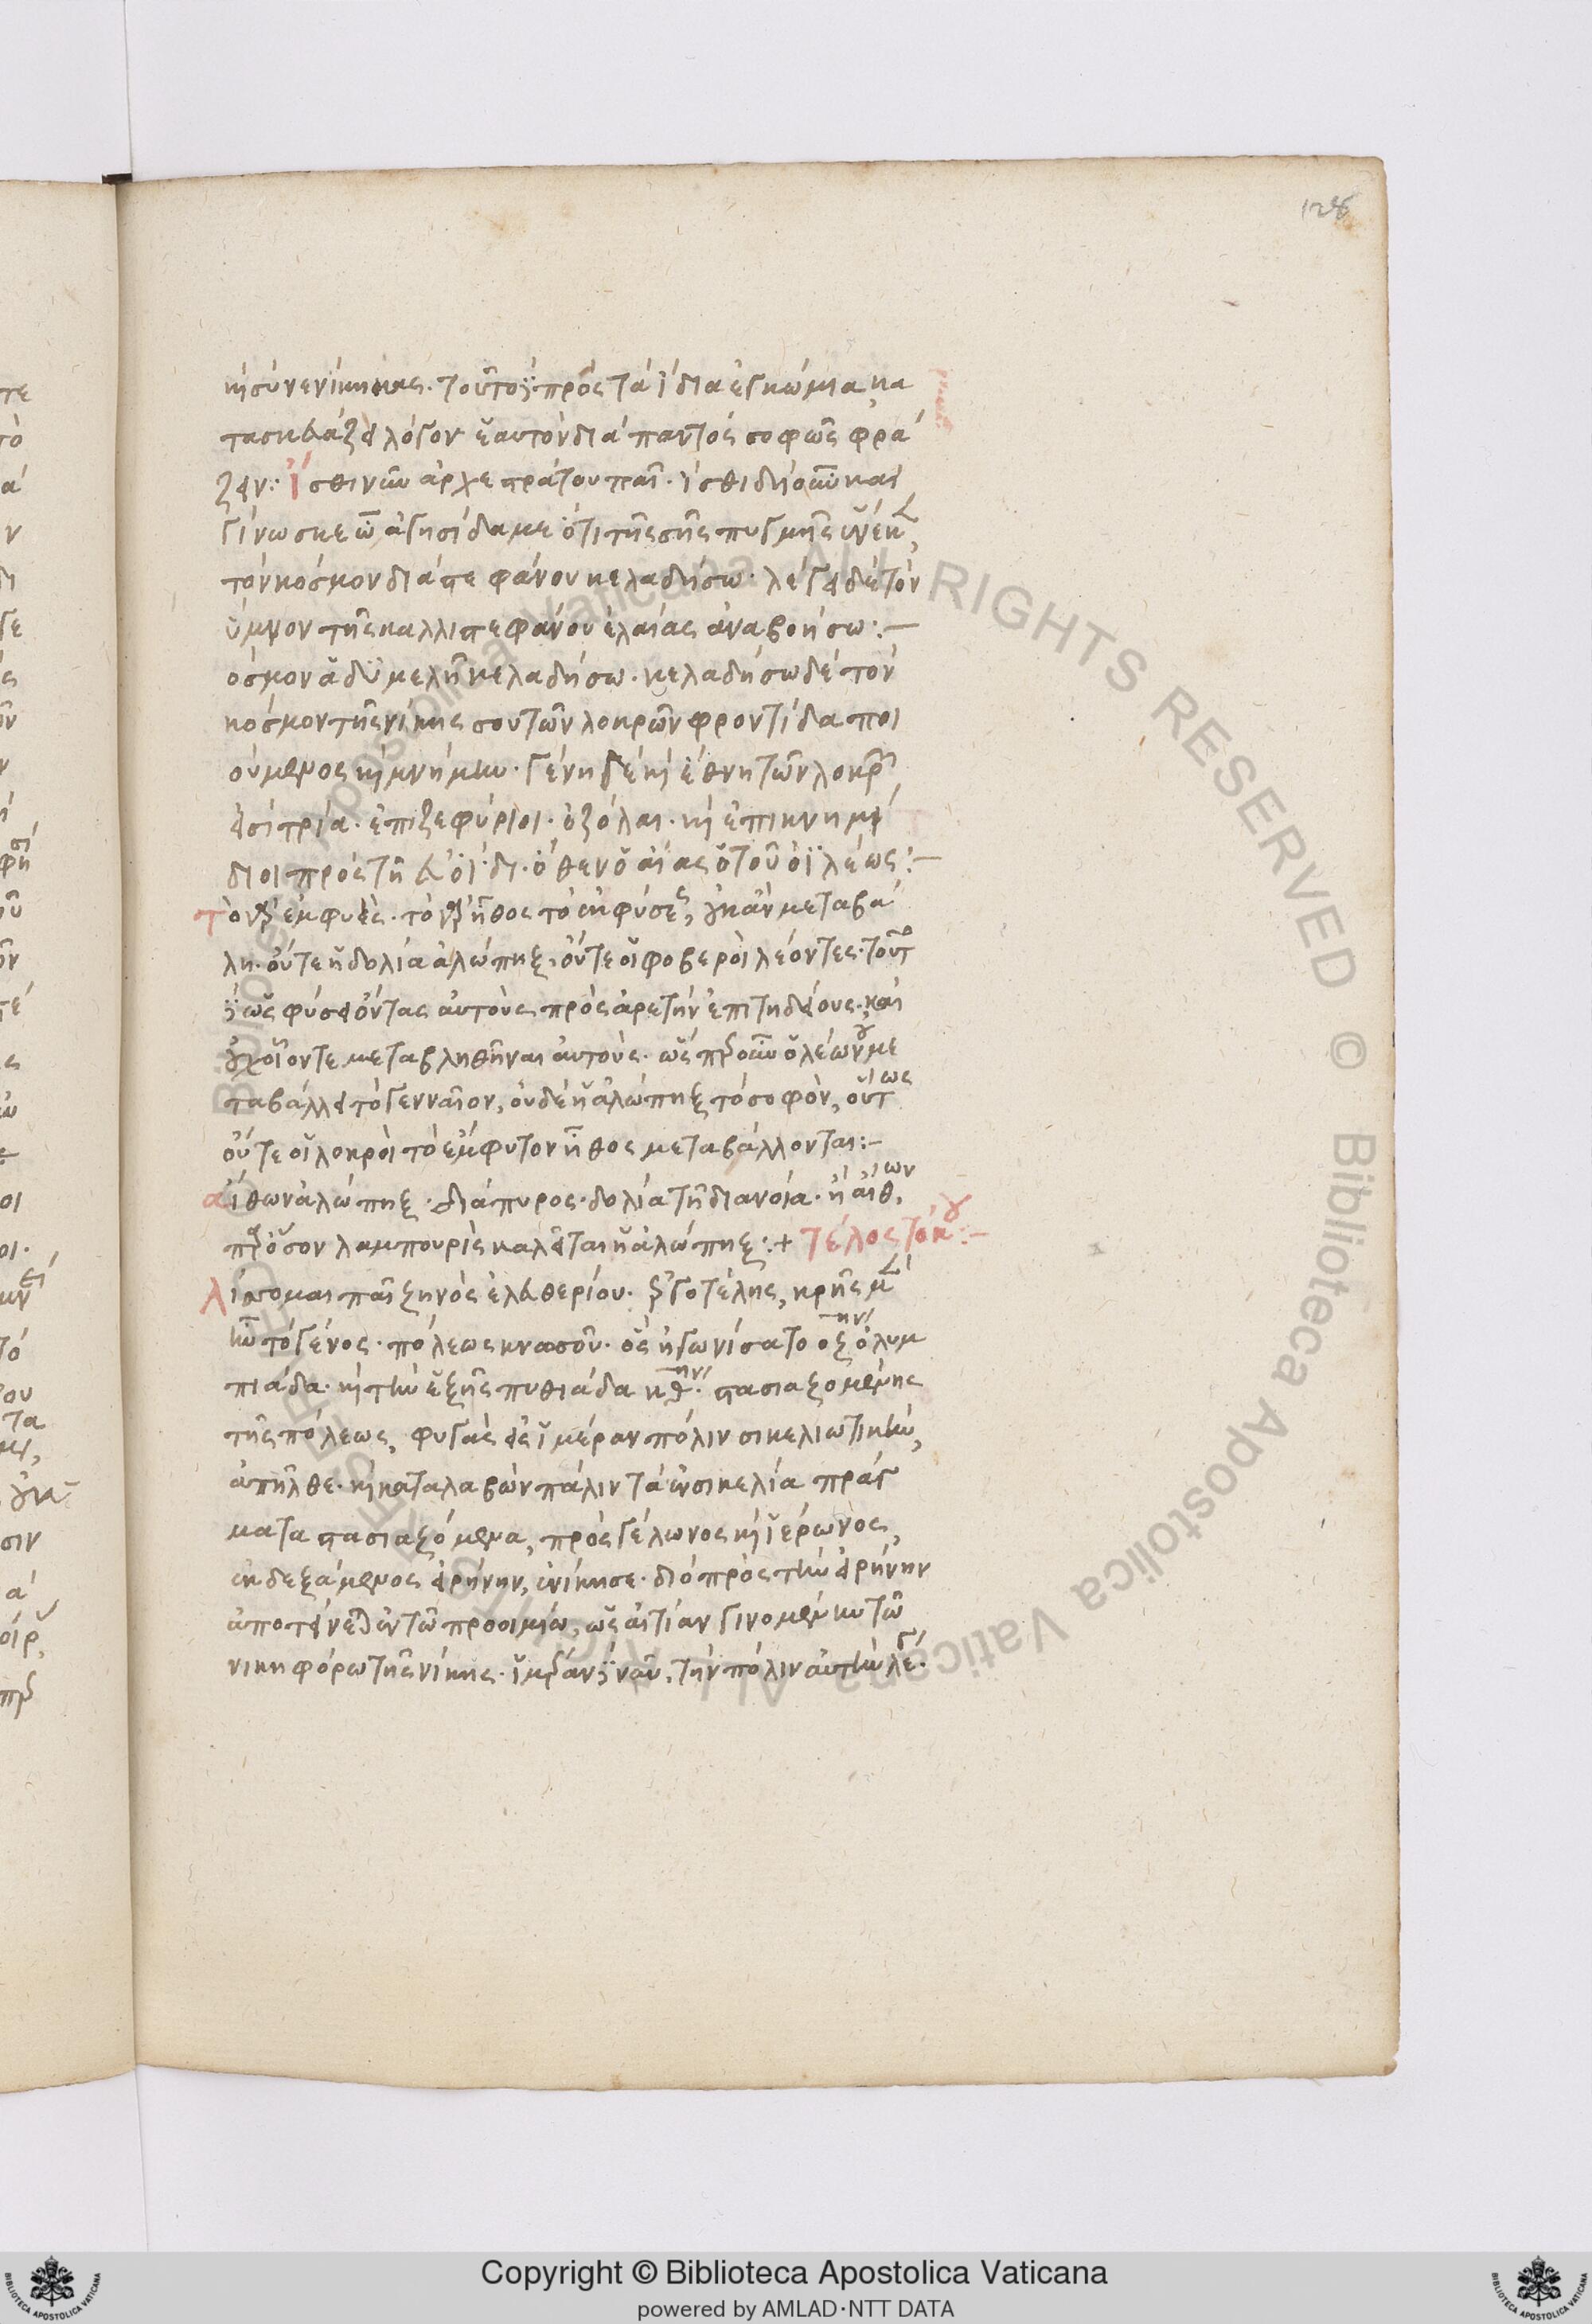 128
καὶ συνενίκησας. τοῦτο γὰρ πρὸς τὰ ἴδια ἐγκώμια κα
τασκευάζει λόγον ἑαυτὸν διὰ παντὸς σοφῶς φρά
ζειν: ἴσθι νῦν ἀρχεστράτου παῖ. ἴσθι δὴ οὖν καὶ
γίνωσκε ὦ ἀγησίδαμε ὅτι τῆς σῆς πυγμῆς ἕνεκεν
τὸν κόσμον διὰ στεφάνου κελαδήσω. λέγει δὲ τὸν
ὕμνον τῆς καλλιστεφάνου ἐλαίας ἀναβοήσω:—
όσμον ἁδυμελῆ κελαδήσω. κελαδήσω δὲ τὸν
κόσμον τῆς νίκης σου τῶν λοκρῶν φροντίδα ποι
ούμενος καὶ μνήμην. γένη δὲ καὶ ἔθνη τῶν λοκρῶν
εἰσὶ τρία. ἐπιζεφύριοι. ὀζόλαι. καὶ ἐπικνημί
διοι πρὸς τῇ εὐοί δι. ὅθεν ὁ αἴας ὁ τοῦ ὀϊλέως:—
τὸ γὰρ ἐμφυὲς. τὸ γὰρ ἦθος τὸ ἐκ φύσεως, οὐκ ἂν μεταβά
λῃ. οὔτε ἡ δολία ἀλώπηξ, οὔτε οἱ φοβεροὶ λέοντες. τοῦτο
γὰρ ὡς φύσει ὄντας αὐτοὺς πρὸς ἀρετὴν ἐπιτηδείους. καὶ
οὐχ οἷόν τε μεταβληθῆναι αὐτοὺς. ὥσπερ οὖν ὁ λέων οὐ με
ταβάλλει τὸ γενναῖον, οὐδὲ ἡ ἀλώπηξ τὸ σοφὸν, οὕτως
οὔτε οἱ λοκροὶ τὸ ἔμφυτον ἦθος μεταβάλλονται:—
αἴθων ἀλώπηξ. διάπυρος. δολία τῇ διανοίᾳ. ἢ αἴθων,
παρόσον λαμπουρὶς καλεῖται ἡ ἀλώπηξ:+ τέλος τοῦ κ:—
λίσσομαι παῖ ζηνὸς ἐλευθερίου. ἐργοτέλης, κρὴς μὲν
ἦν τὸ γένος. πόλεως κνωσοῦ. ὃς ἠγωνίσατο οζ ην ὀλυμ
πιάδα. καὶ τὴν ἑξῆς πυθιάδα κθ ην. στασιαζομένης
τῆς πόλεως, φυγὰς εἰς ἱμέραν πόλιν σικελιωτικὴν,
ἀπῆλθε. καὶ καταλαβὼν πάλιν τὰ ἐν σικελίᾳ πράγ
ματα στασιαζόμενα, πρὸς γέλωνος καὶ ἱέρωνος,
ἐκδεξάμενος εἰρήνην, ἐνίκησε. διὸ πρὸς τὴν εἰρήνην
ἀποτείνεται ἐν τῷ προοιμίῳ, ὡς αἰτίαν γινομένην τῷ
νικηφόρῳ τῆς νίκης. ἱμέραν γὰρ νῦν, τὴν πόλιν αὐτὴν λέγει.
Copyright © Biblioteca Apostolica Vaticana
powered by AMLAD·NTT DATA